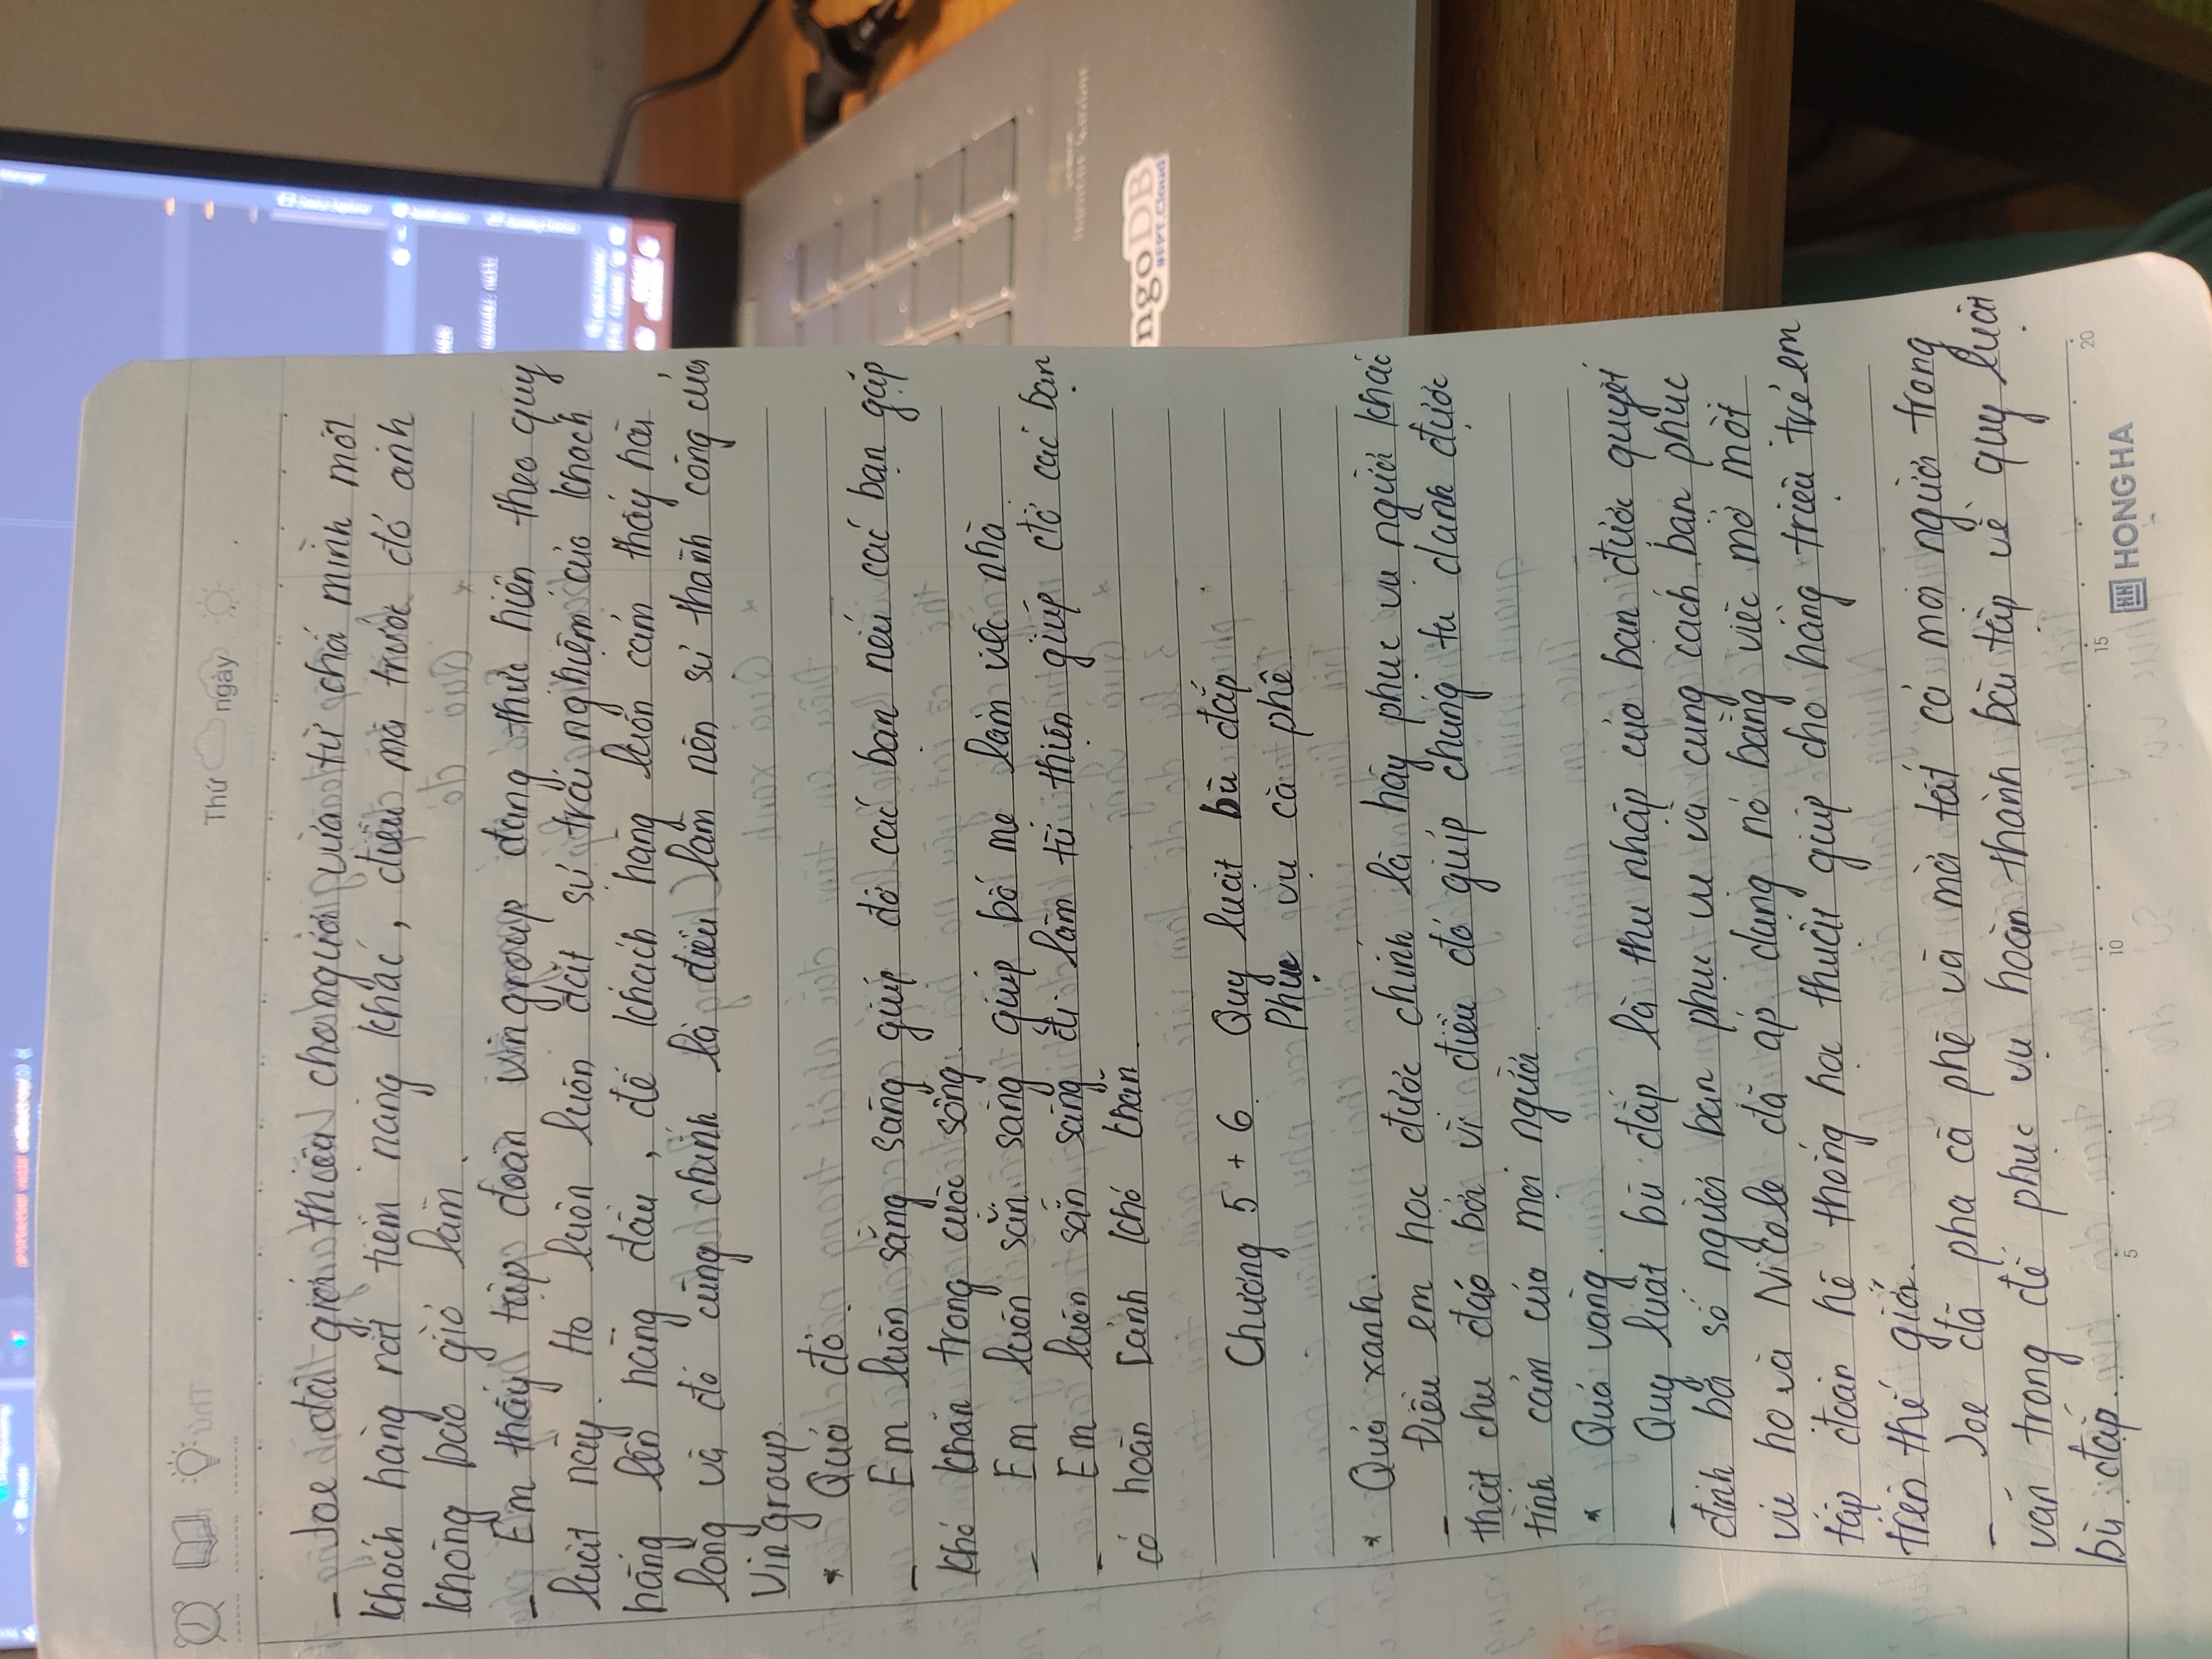 Thứ ngày
_ Joe đã giới thiệu cho người vừa từ chối mình một
khách hàng rất tiềm năng khác, điều mà trước đó anh
không bao giờ làm.
_ Em thấy tập đoàn Vingroup đang thực hiện theo quy
luật này. Họ luôn luôn đặt sự trải nghiệm của khách
hàng lên hàng đầu, để khách hàng luôn cảm thấy hài
lòng và đó cũng chính là điều làm nên sự thành công của
Vingroup.
* Quả đỏ.
_ Em luôn sẵng sàng giúp đỡ các bạn nếu các bạn gặp
khó khăn trong cuộc sống.
_ Em luôn sẵn sàng giúp bố mẹ làm việc nhà
_ Em luôn sẵn sàng đi làm từ thiện giúp đỡ các bạn
có hoàn cảnh khó khăn.
Chương 5 + 6. Quy luật bù đắp
Phục vụ cà phê
* Quả xanh.
_ Điều em học được chính là hãy phục vụ người khác
thật chu đáo bởi vì điều đó giúp chúng ta dành được
tình cảm của mọi người.
* Quả vàng.
_ Quy luật bù đắp là thu nhập của bạn được quyết
định bởi số người bạn phục vụ và cung cách bạn phục
vụ họ và Nicole đã áp dụng nó bằng việc mở một
tập đoàn hệ thống học thuật giúp cho hàng triệu trẻ em
trên thế giới.
_ Joe đã pha cà phê và mời tất cả mọi người trong
văn trong để phục vụ hoàn thành bài tập về quy luật
bù đắp.
5 10 15 20
HH HONG HA
ngoDB
#FPT.Cloud